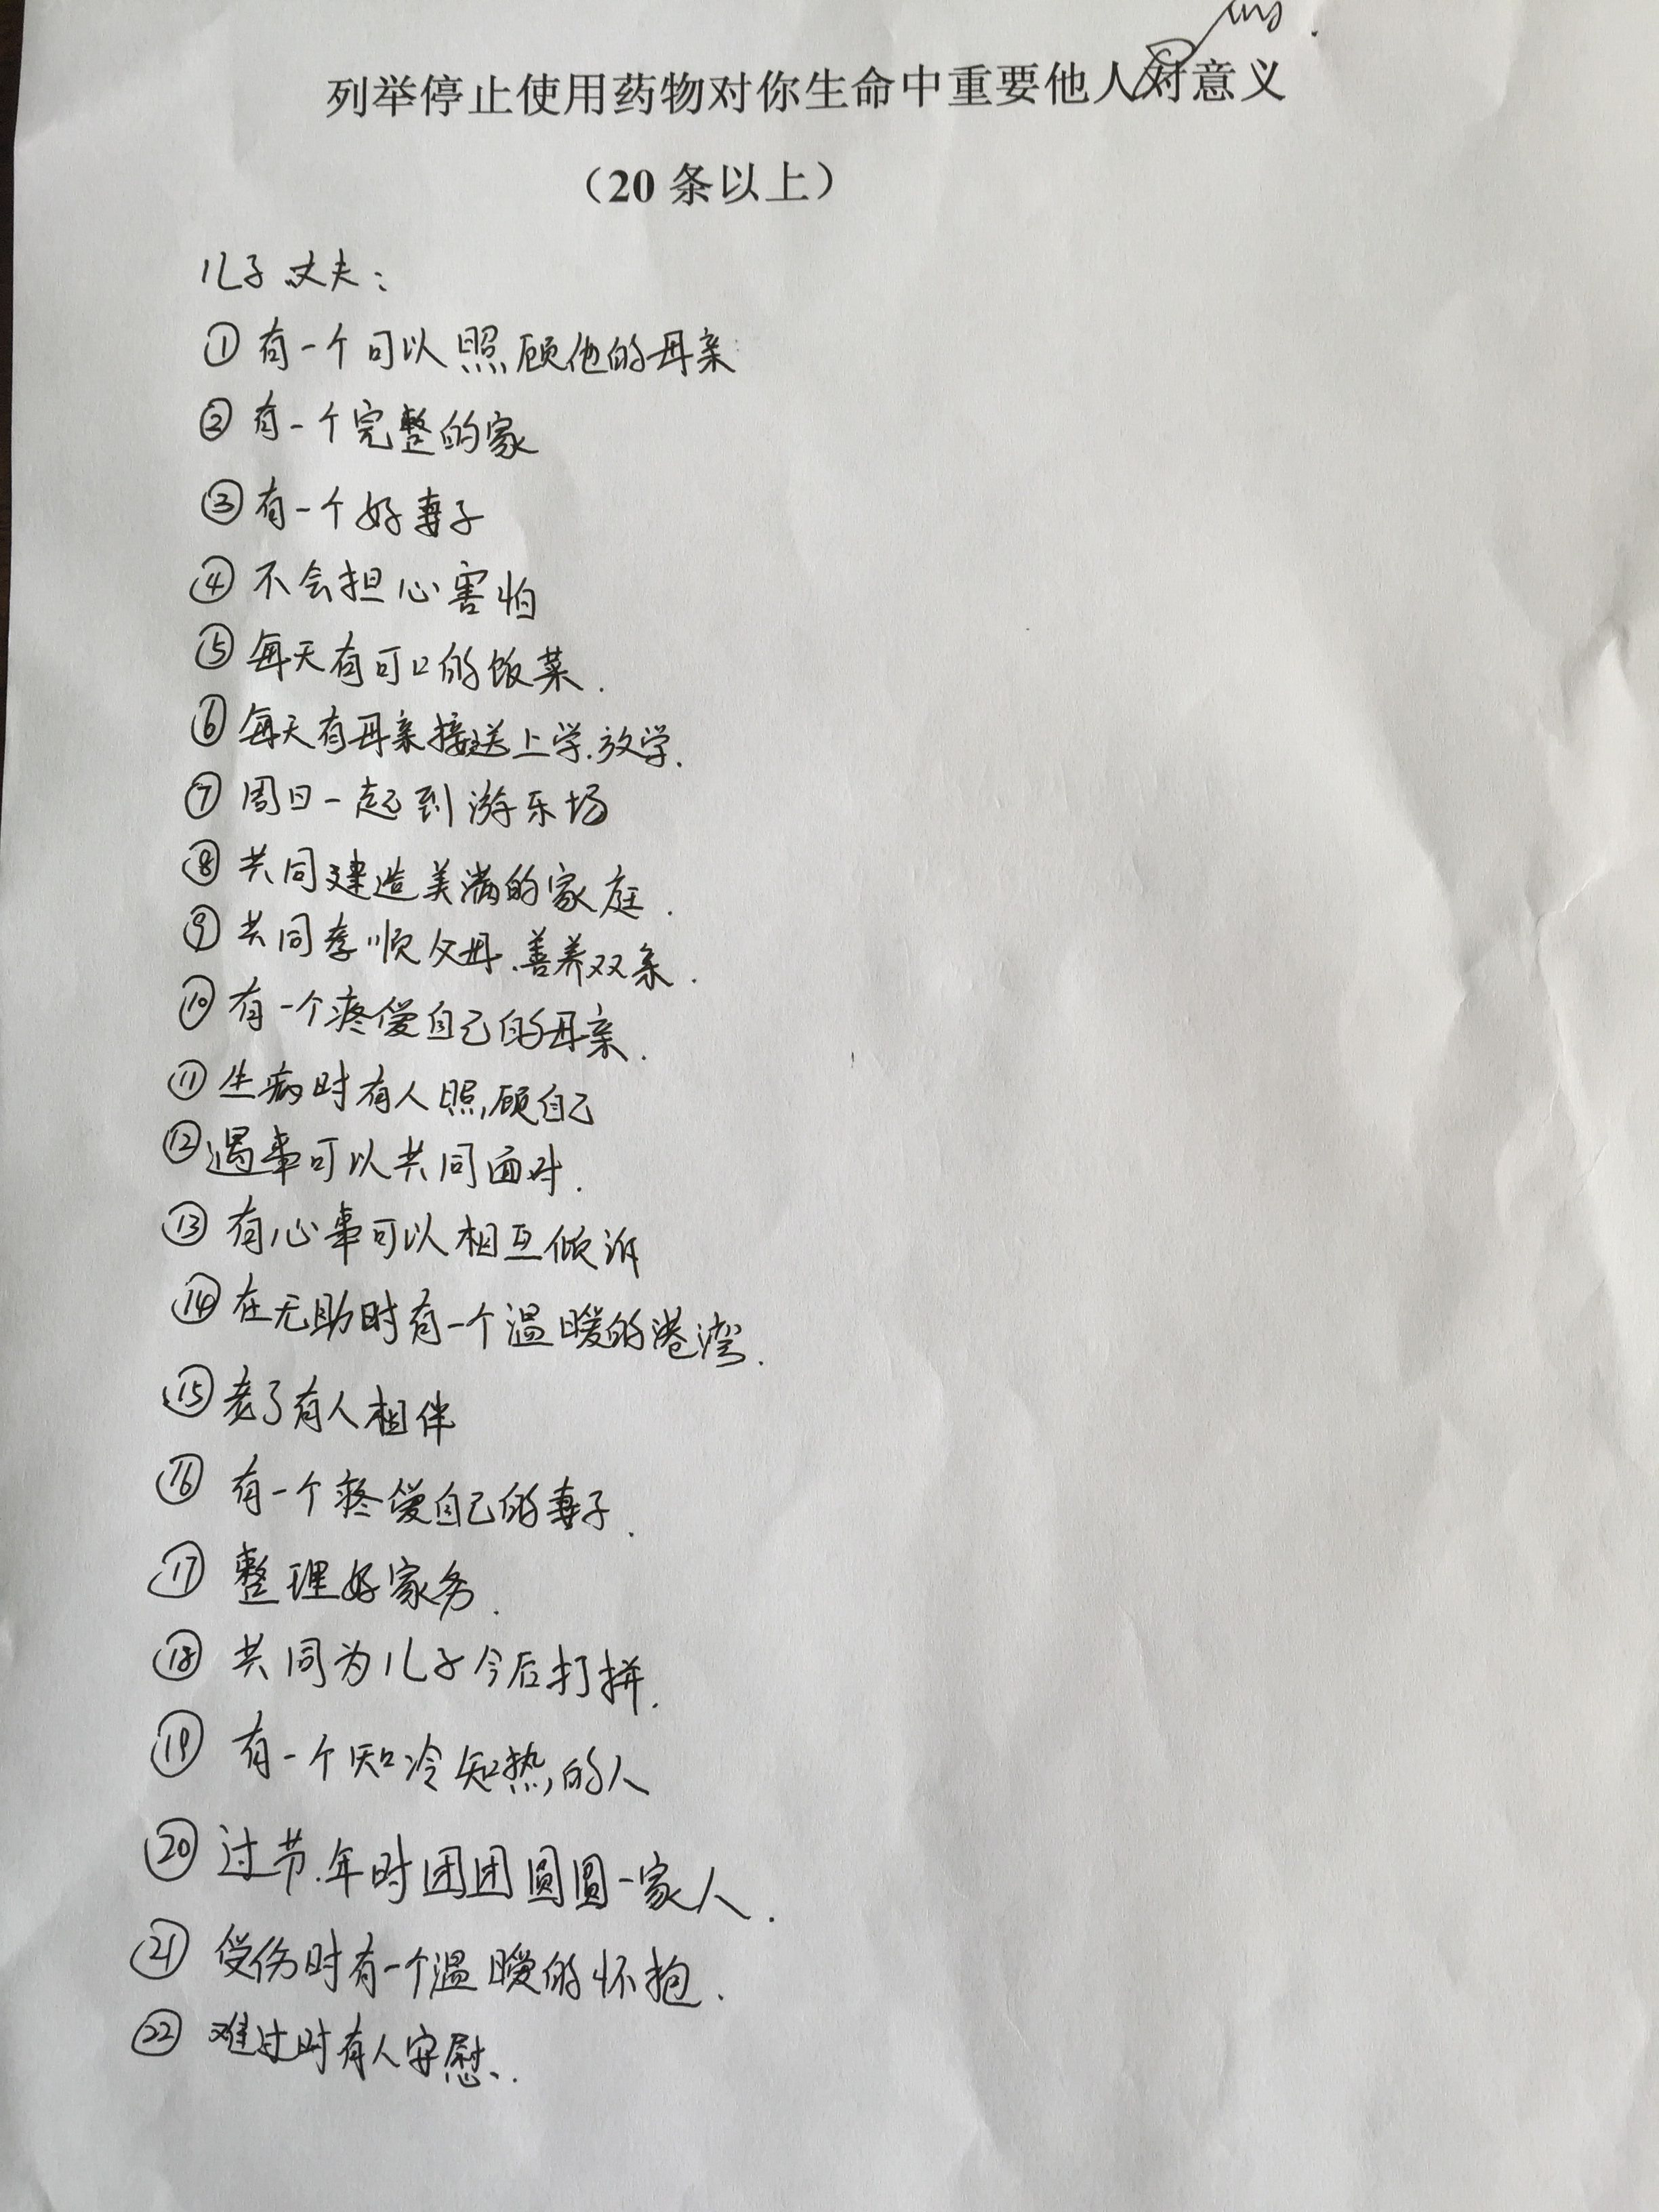 列举停止使用药物对你生命中重要他人对意义
（20 条以上）
儿子丈夫：
① 有一个可以照顾他的母亲
② 有一个完整的家
③ 有一个好妻子
④ 不会担心害怕
⑤ 每天有可口的饭菜.
⑥ 每天有母亲接送上学.放学.
⑦ 周日一起到游乐场
⑧ 共同建造美满的家庭.
⑨ 共同孝顺父母.善养双亲.
⑩ 有一个疼爱自己的母亲.
⑪ 生病时有人照顾自己
⑫ 遇事可以共同面对.
⑬ 有心事可以相互倾诉
⑭ 在无助时有一个温暖的港湾.
⑮ 老了有人相伴
⑯ 有一个疼爱自己的妻子.
⑰ 整理好家务.
⑱ 共同为儿子今后打拼.
⑲ 有一个知冷知热的人
⑳ 过节.年时团团圆圆一家人.
㉑ 受伤时有一个温暖的怀抱.
㉒ 难过时有人安慰..